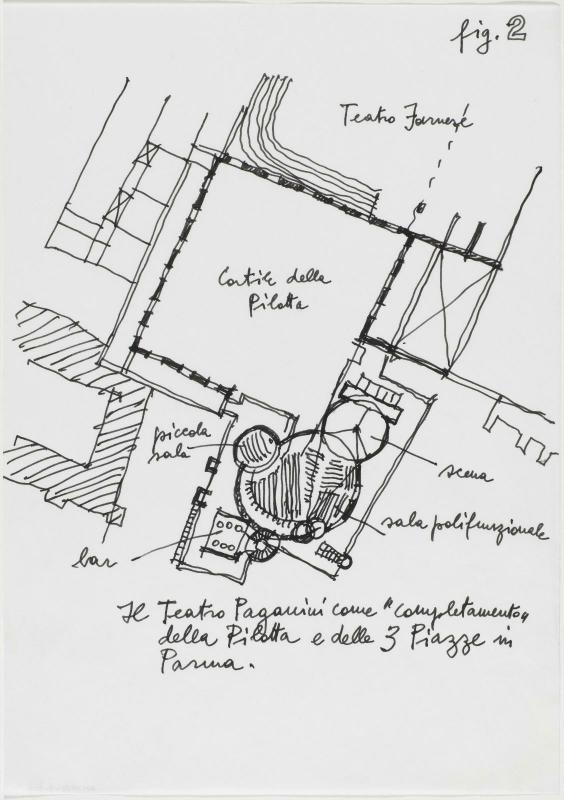 fig. 2
Teatro Farnese
Cortile della
Pilotta
piccola
sala
scena
sala polifunzionale
bar
Il Teatro Paganini come "completamento"
della Pilotta e delle 3 Piazze in
Parma.